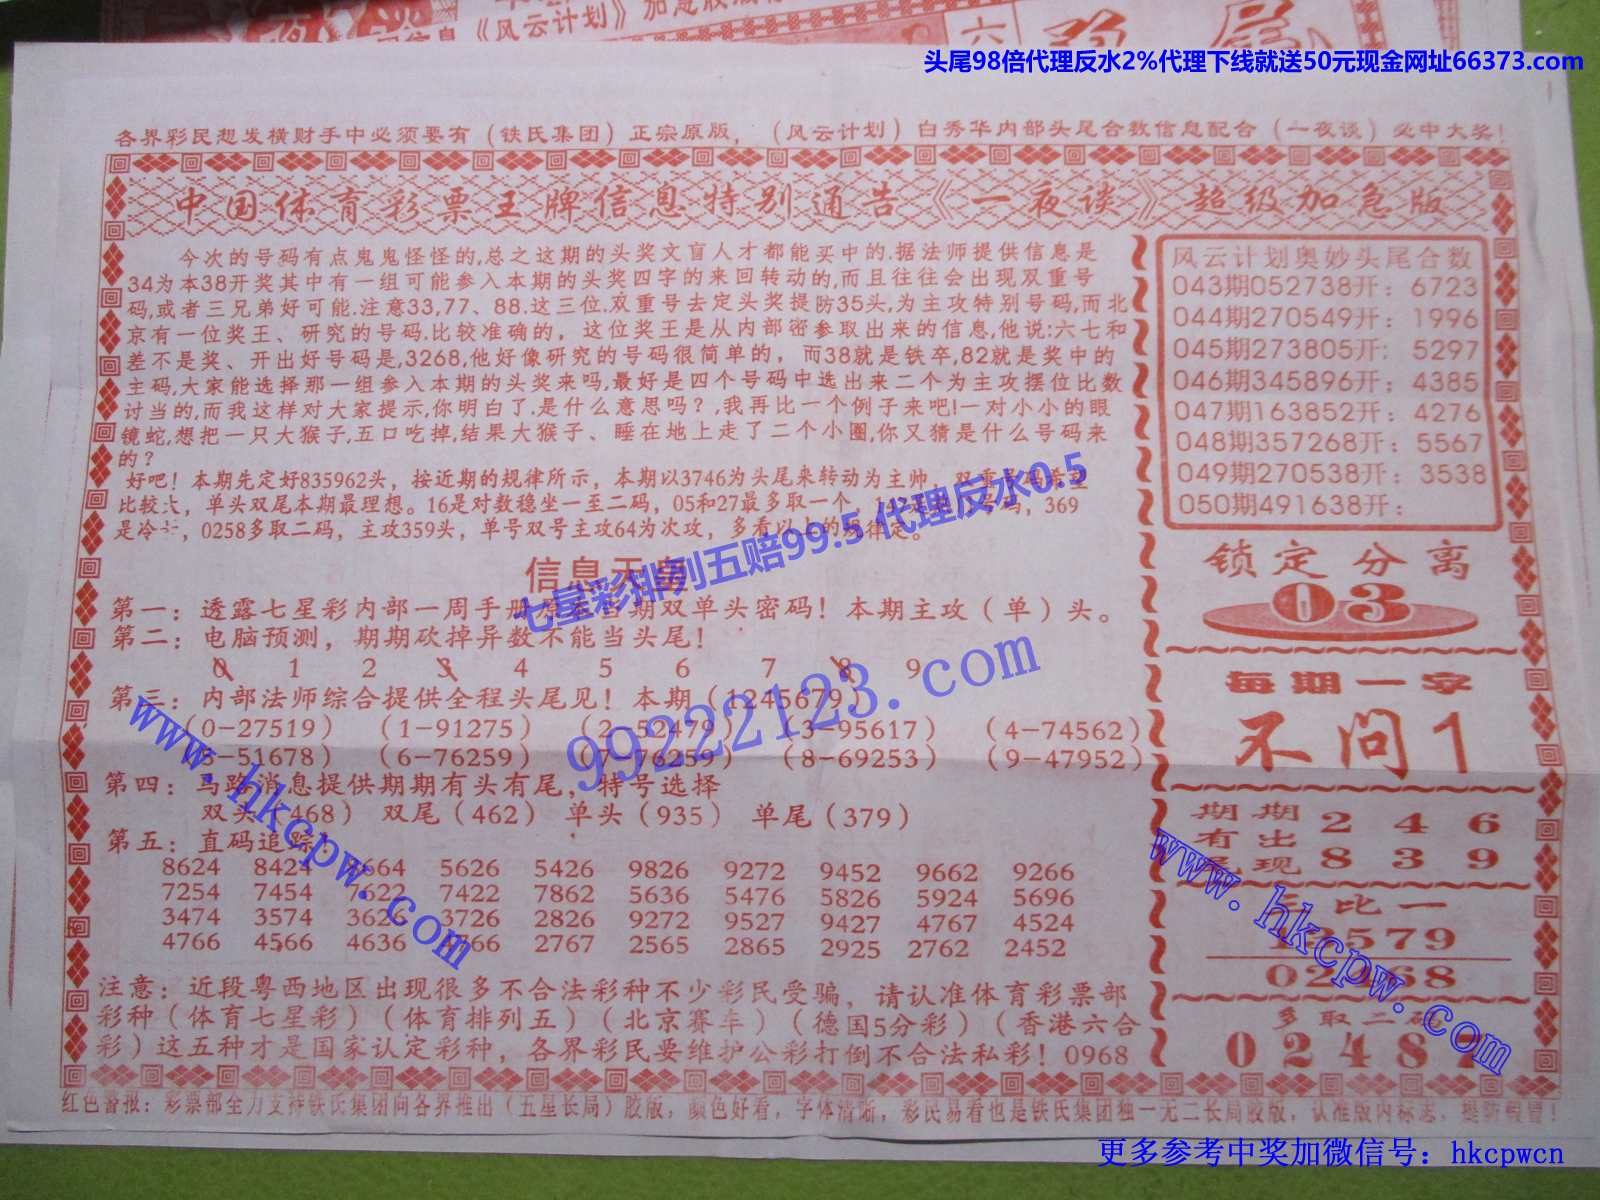 《风云计划》
六
头尾98倍代理反水2%代理下线就送50元现金网址66373.com
各界彩民想发横财手中必须要有（铁氏集团）正宗原版，（风云计划）白秀华内部头尾合数信息配合（一夜谈）必中大奖！
中国体育彩票王牌信息特别通告《一夜谈》超级加急版
今次的号码有点鬼鬼怪怪的,总之这期的头奖文盲人才都能买中的.据法师提供信息是
34为本38开奖其中有一组可能参入本期的头奖四字的来回转动的,而且往往会出现双重号
码,或者三兄弟好可能.注意33,77、88.这三位.双重号去定头奖提防35头,为主攻特别号码,而北
京有一位奖王、研究的号码.比较准确的，这位奖王是从内部密参取出来的信息,他说:六七和
差不是奖、开出好号码是,3268,他好像研究的号码很简单的，而38就是铁卒,82就是奖中的
主码,大家能选择那一组参入本期的头奖来吗,最好是四个号码中选出来二个为主攻摆位比数
讨当的,而我这样对大家提示,你明白了.是什么意思吗？,我再比一个例子来吧!一对小小的眼
镜蛇,想把一只大猴子,五口吃掉,结果大猴子、睡在地上走了二个小圈,你又猜是什么号码来
的？
好吧！本期先定好835962头，按近期的规律所示，本期以3746为头尾来转动为主帅，双重号码希望
比较大，单头双尾本期最理想。16是对数稳坐一至二码，05和27最多取一个，号码，369
是冷，0258多取二码，主攻359头，单号双号主攻64为次攻，多看以上的规律定。
七星彩排列五赔99.5代理反水0.5
信息天
第一：透露七星彩内部一周手册期双单头密码！本期主攻（单）头。
第二：电脑预测，期期砍掉异数不能当头尾！
0 1 2 3 4 5 6 7 8 9
第三：内部法师综合提供全程头尾见！本期（1245679）
（0-27519）（1-91275）（2-52479）（3-95617）（4-74562）
（5-51678）（6-76259）（7-76259）（8-69253）（9-47952）
第四：马路消息提供期期有头有尾，特号选择
双头（468） 双尾（462） 单头（935） 单尾（379）
第五：直码追踪：
8624 8424 8664 5626 5426 9826 9272 9452 9662 9266
7254 7454 7622 7422 7862 5636 5476 5826 5924 5696
3474 3574 3626 3726 2826 9272 9527 9427 4767 4524
4766 4566 4636 4766 2767 2565 2865 2925 2762 2452
注意：近段粤西地区出现很多不合法彩种不少彩民受骗，请认准体育彩票部
彩种（体育七星彩）（体育排列五）（北京赛车）（德国5分彩）（香港六合
彩）这五种才是国家认定彩种，各界彩民要维护公彩打倒不合法私彩！0968
风云计划奥妙头尾合数
043期052738开：6723
044期270549开：1996
045期273805开：5297
046期345896开：4385
047期163852开：4276
048期357268开：5567
049期270538开：3538
050期491638开：
锁定分离
03
每期一字
不问1
期期 2 4 6
有出
尾现 8 3 9
三比一
13579
02468
多取二码
02487
红色警报：彩票部全力支持铁氏集团向各界推出（五星长局）胶版，颜色好看，字体清晰，彩民易看也是铁氏集团独一无二长局胶版，认准版内标志，提防假冒！
99222123.com
www.hkcpw.com
www.hkcpw.com
更多参考中奖加微信号：hkcpwcn